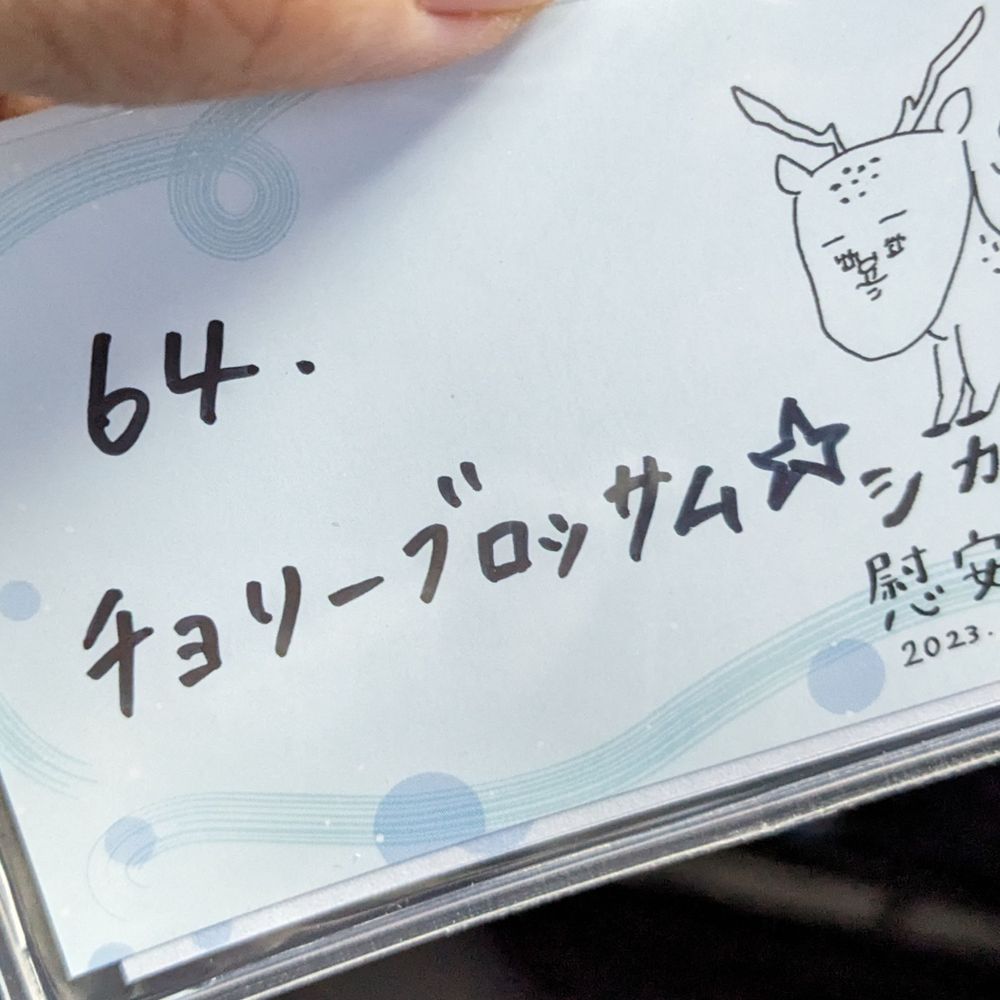 64.
チョリーブロッサム☆
シカ
慰安
2023.